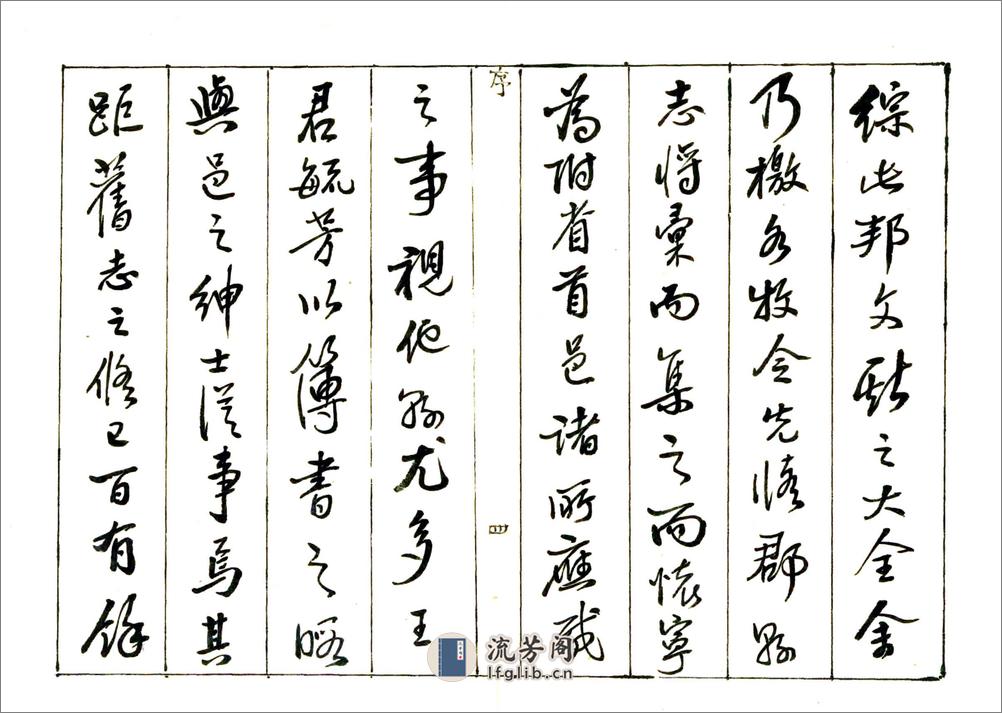 綜此邦文獻之大全余
乃檄各牧令先脩郡縣
志將彙而集之而懷寧
為附省首邑諸所應載
序 四
之事視他縣尤多王
君毓芳以簿書之暇
與邑之紳士從事焉其
距舊志之脩已百有餘
流芳阁
lfglib.cn